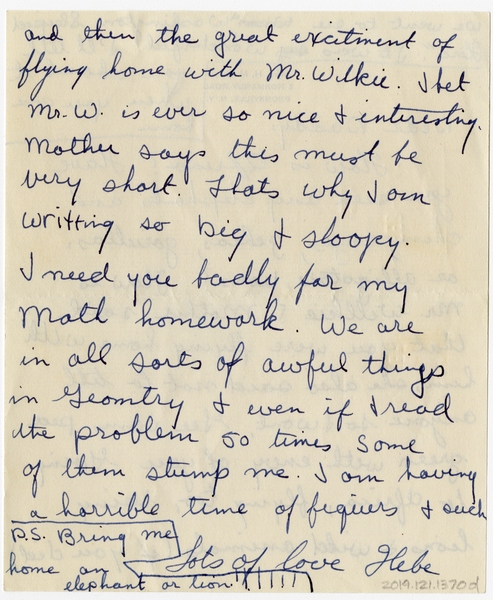 and then the great excitment of
flying home with Mr. Wilkie. I bet
Mr. W. is ever so nice & interesting.
Mother says this must be
very short. Thats why I am
writting so big & sloopy.
I need you badly for my
Math homework. We are
in all sorts of awful things
in Geomtry & even if I read
the problem 50 times some
of them stump me. I am having
a horrible time of fiquers & such
P.S. Bring me
home an
elephant or lion !!!!!!
Lots of love Hebe
2019.121.1370d